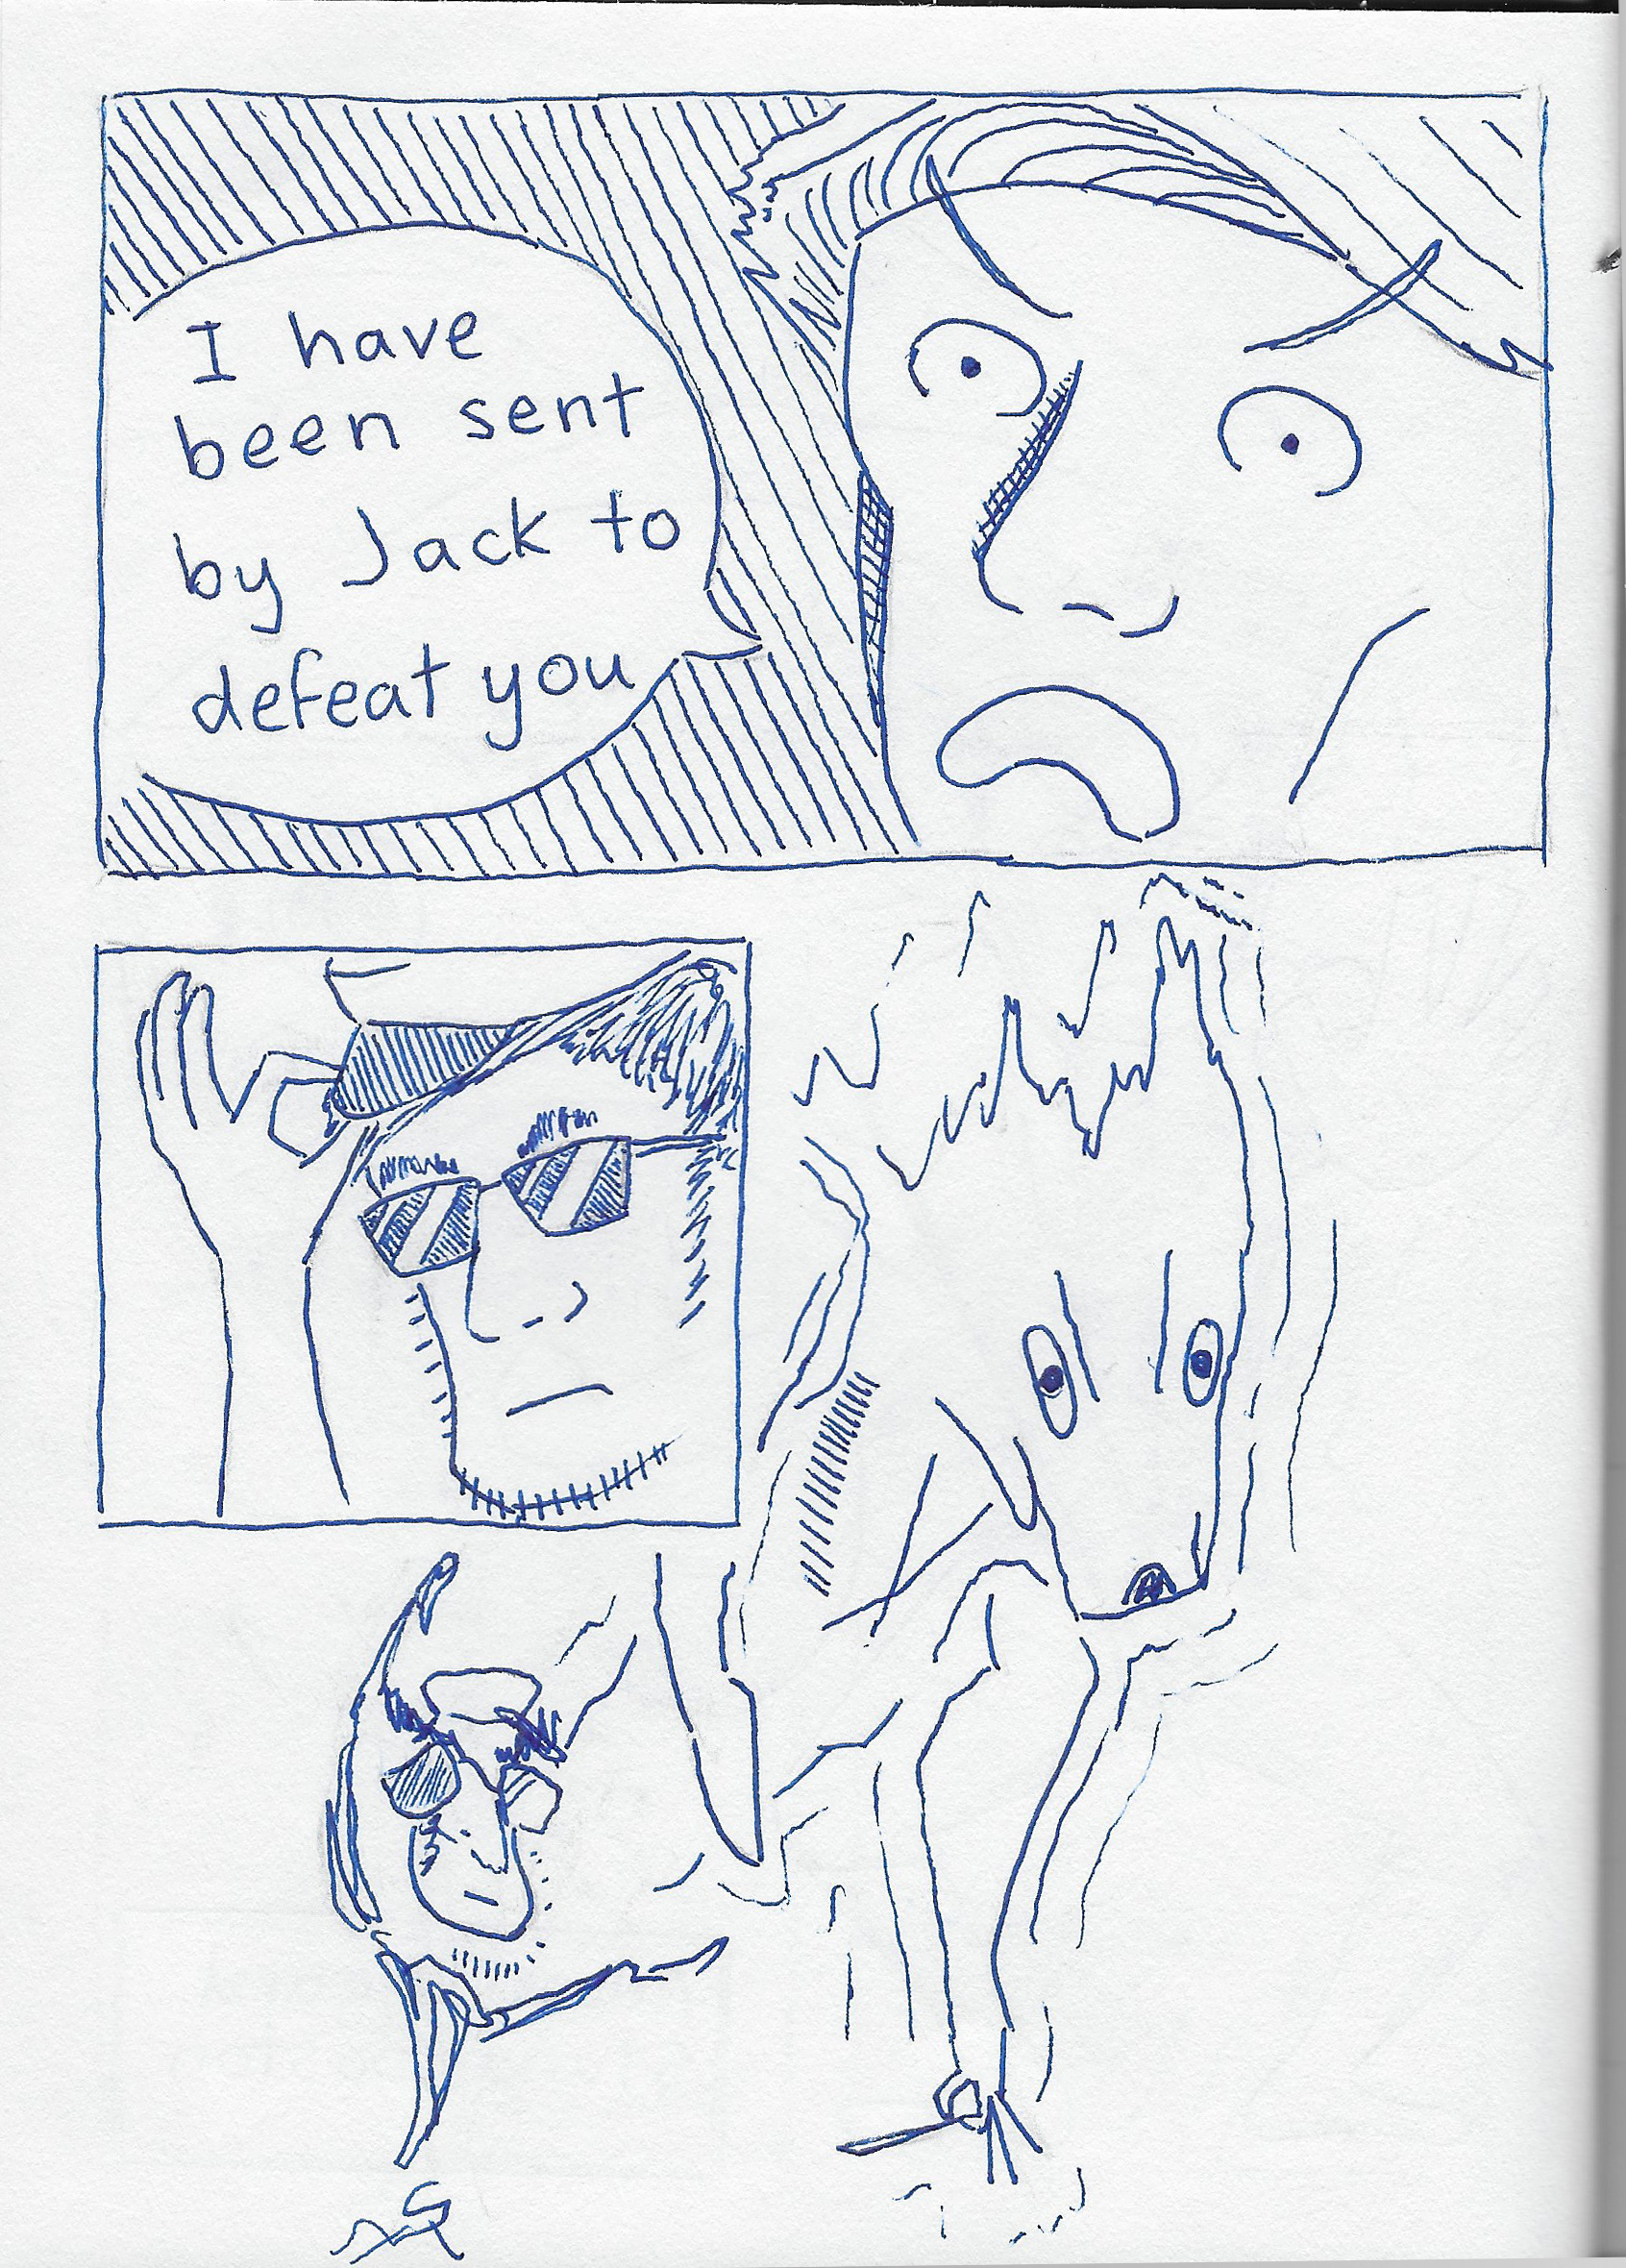 I have
been sent
by Jack to
defeat you